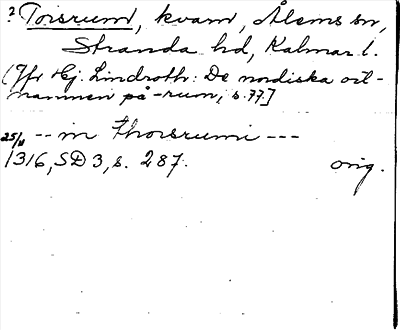 ? Torsrum, kvarn, Ålems sn,
Stranda hd, Kalmar l.
(Jfr Hj. Lindroth: De nordiska ort-
namnen på -rum, s. 77.]
25/11 -- in thorsrumi ---
1316, SD 3, s. 287. orig.